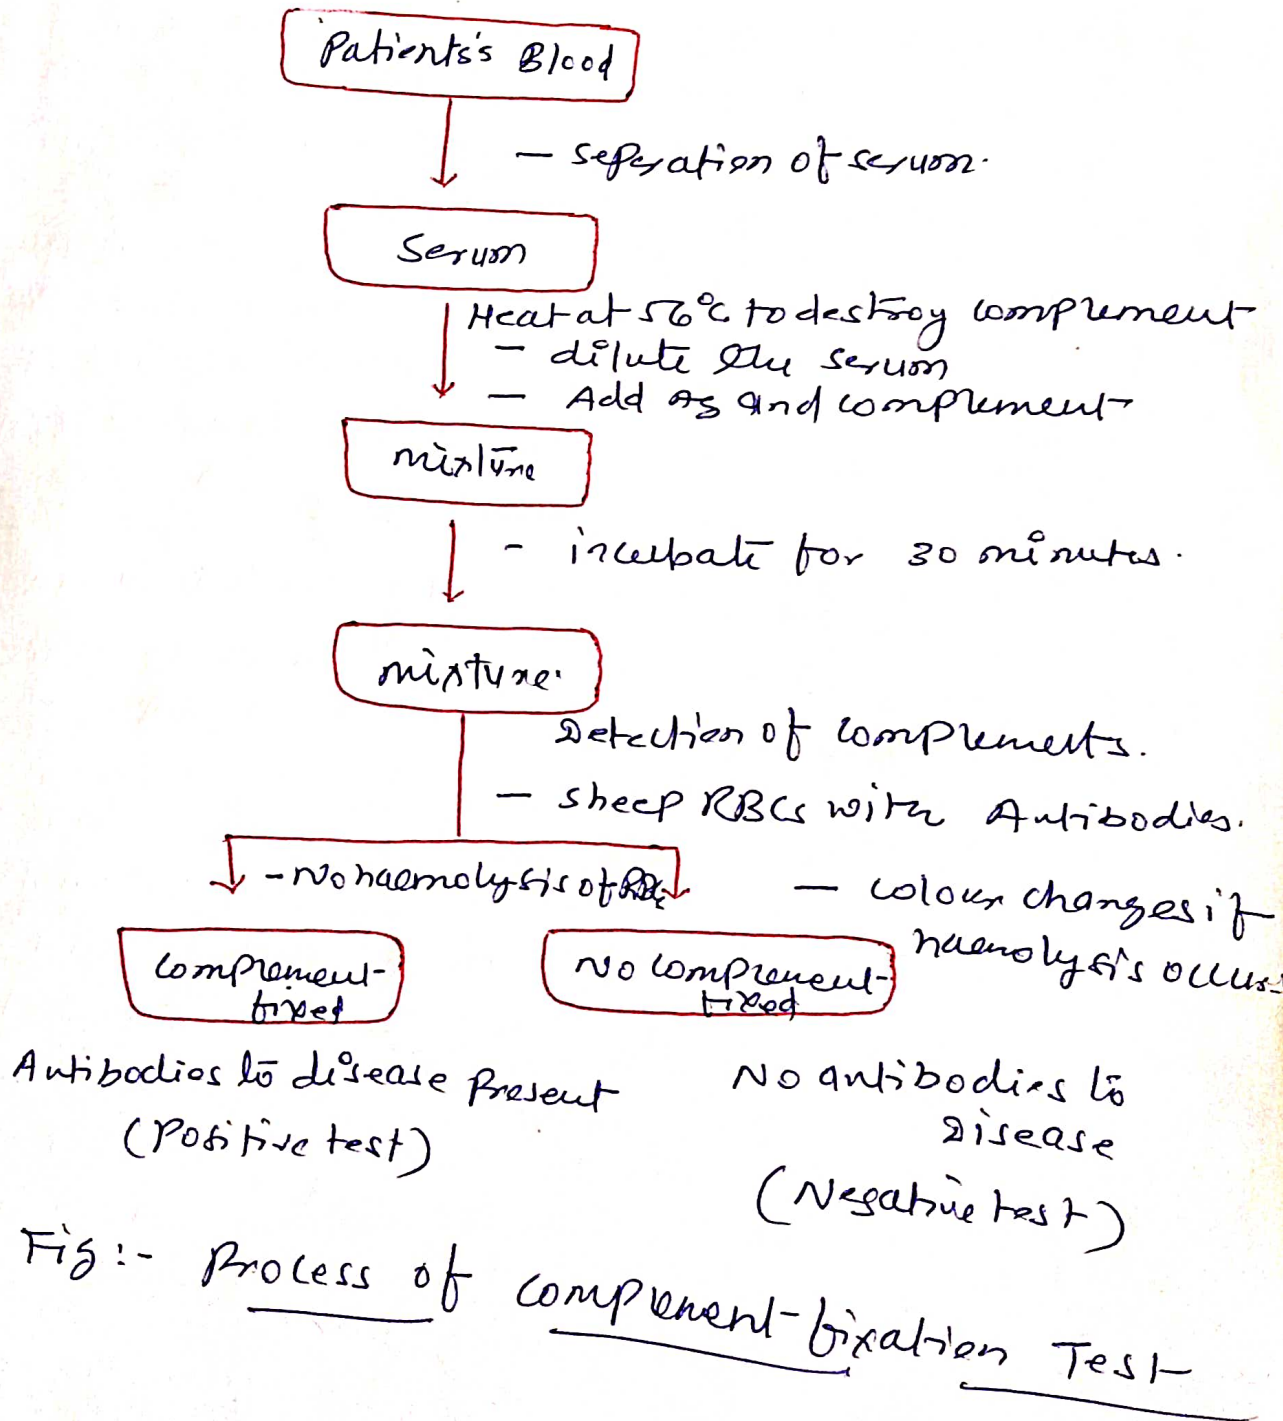 Patients's Blood
- seperation of serum.
Serum
Heat at 56°c to destroy complement
- dilute the serum
- Add Ag and complement
mixture
- incubate for 30 minutes.
mixture.
Detection of complements.
- sheep RBCs with Antibodies.
- No haemolysis of RBCs
- colour changes if
haemolysis occurs
complement
fixed
No complement
fixed
Antibodies to disease Present
(Positive test)
No antibodies to
Disease
(Negative test)
Fig:- Process of complement-fixation Test